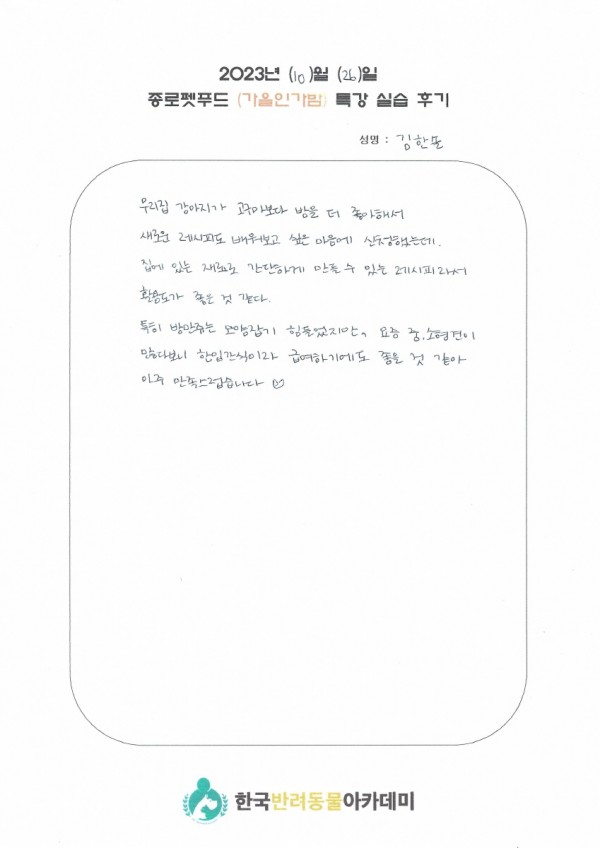 2023년 (10)월 (26)일
종로펫푸드 (가을인가밤) 특강 실습 후기
성명 : 김한
우리집 강아지가 고구마보다 밤을 더 좋아해서
새로운 레시피도 배워보고 싶은 마음에 신청했는데.
집에 있는 재료로 간단하게 만들 수 있는 레시피라서
활용도가 좋은 것 같다.
특히 밤만쥬는 모양잡기 힘들었지만, 요즘 중,소형견이
많다보니 한입간식이라 급여하기에도 좋을 것 같아
아주 만족스럽습니다 ♡
한국반려동물아카데미